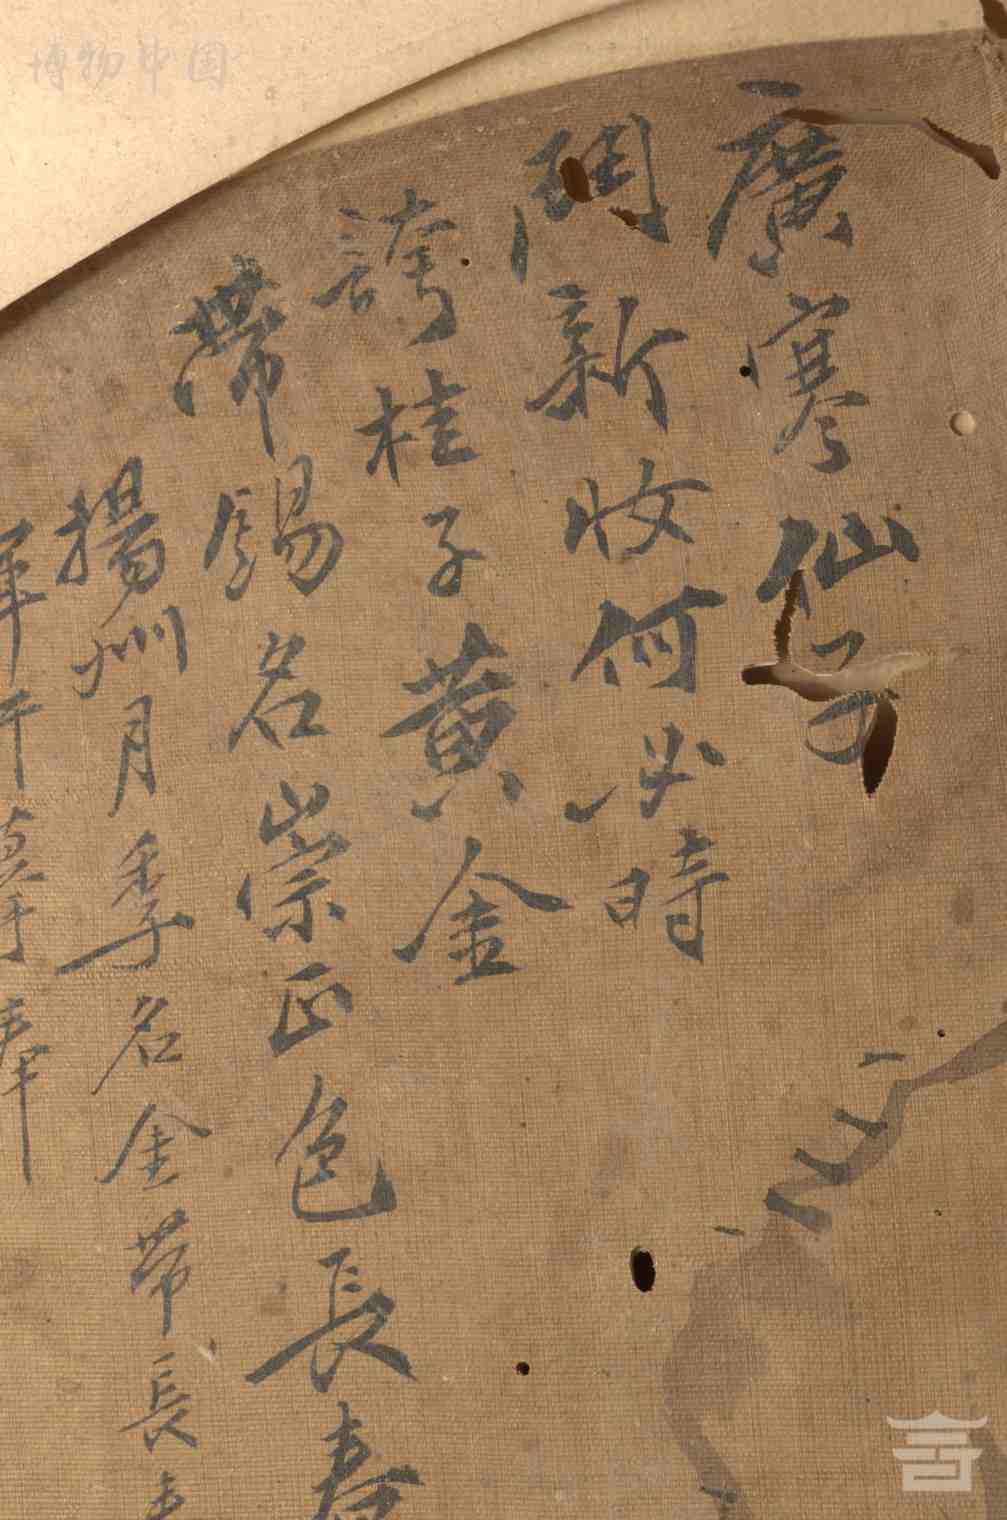 博物中国
廣寒仙子
鬥新妝何必時
誇桂子黄金
帶錫名崇正色長春
揚州月季名金帶長